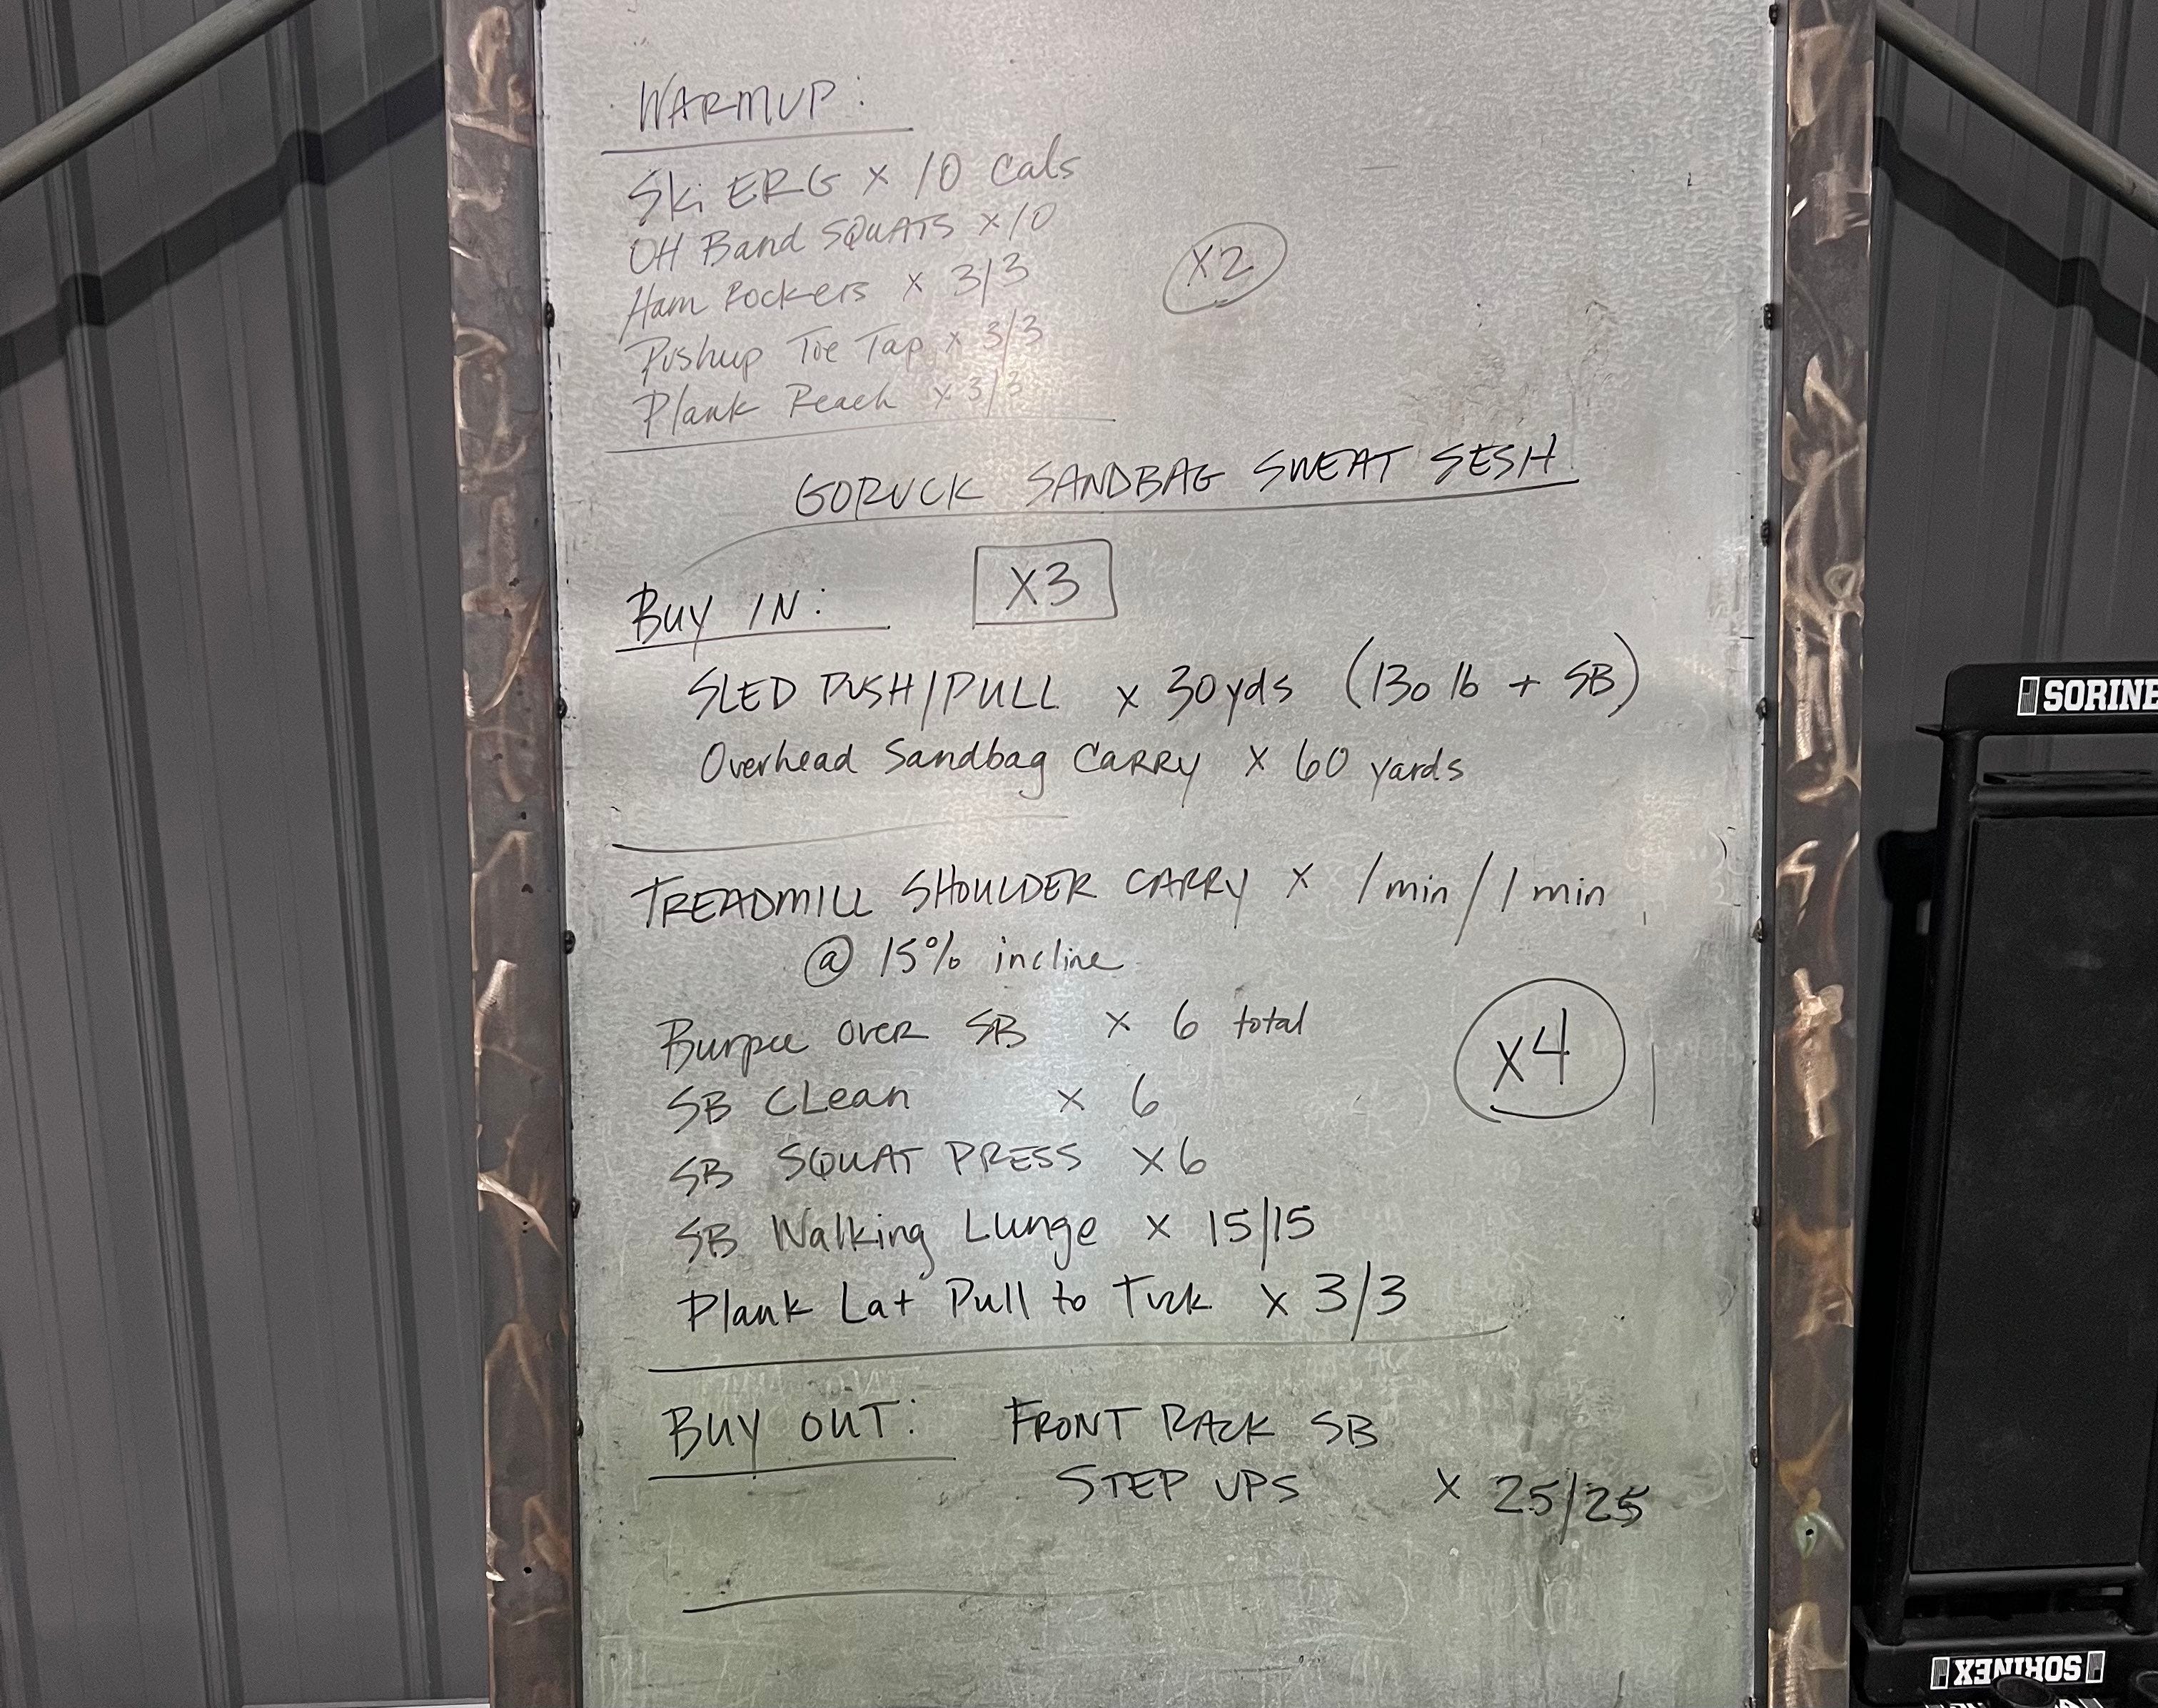 WARMUP:
Ski ERG x 10 Cals
OH Band SQUATS x 10
Ham Rockers x 3/3
x2
Pushup Toe Tap x 3/3
Plank Reach x 3/3
GORUCK SANDBAG SWEAT SESH
BUY IN: x3
SLED PUSH/PULL x 30yds (130 lb + SB)
Overhead Sandbag CARRY x 60 yards
TREADMILL SHOULDER CARRY x 1min/1min
@ 15% incline
Burpee over SB x 6 total
x4
SB CLean x 6
SB SQUAT PRESS x6
SB Walking Lunge x 15/15
Plank Lat Pull to Tuck x 3/3
BUY OUT: FRONT RACK SB
STEP UPS x 25/25
SORINE
SORINEX